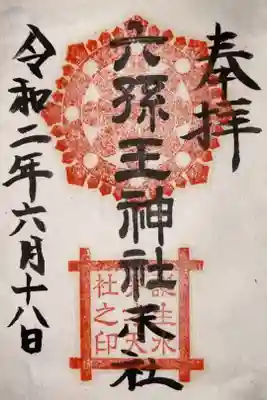 奉拝
六孫王神社末社
令和二年六月十八日
誕生水
天
社之印